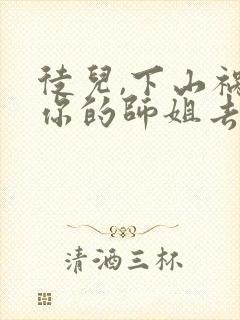 徒兒,下山禍
你的師姐去
清酒三杯